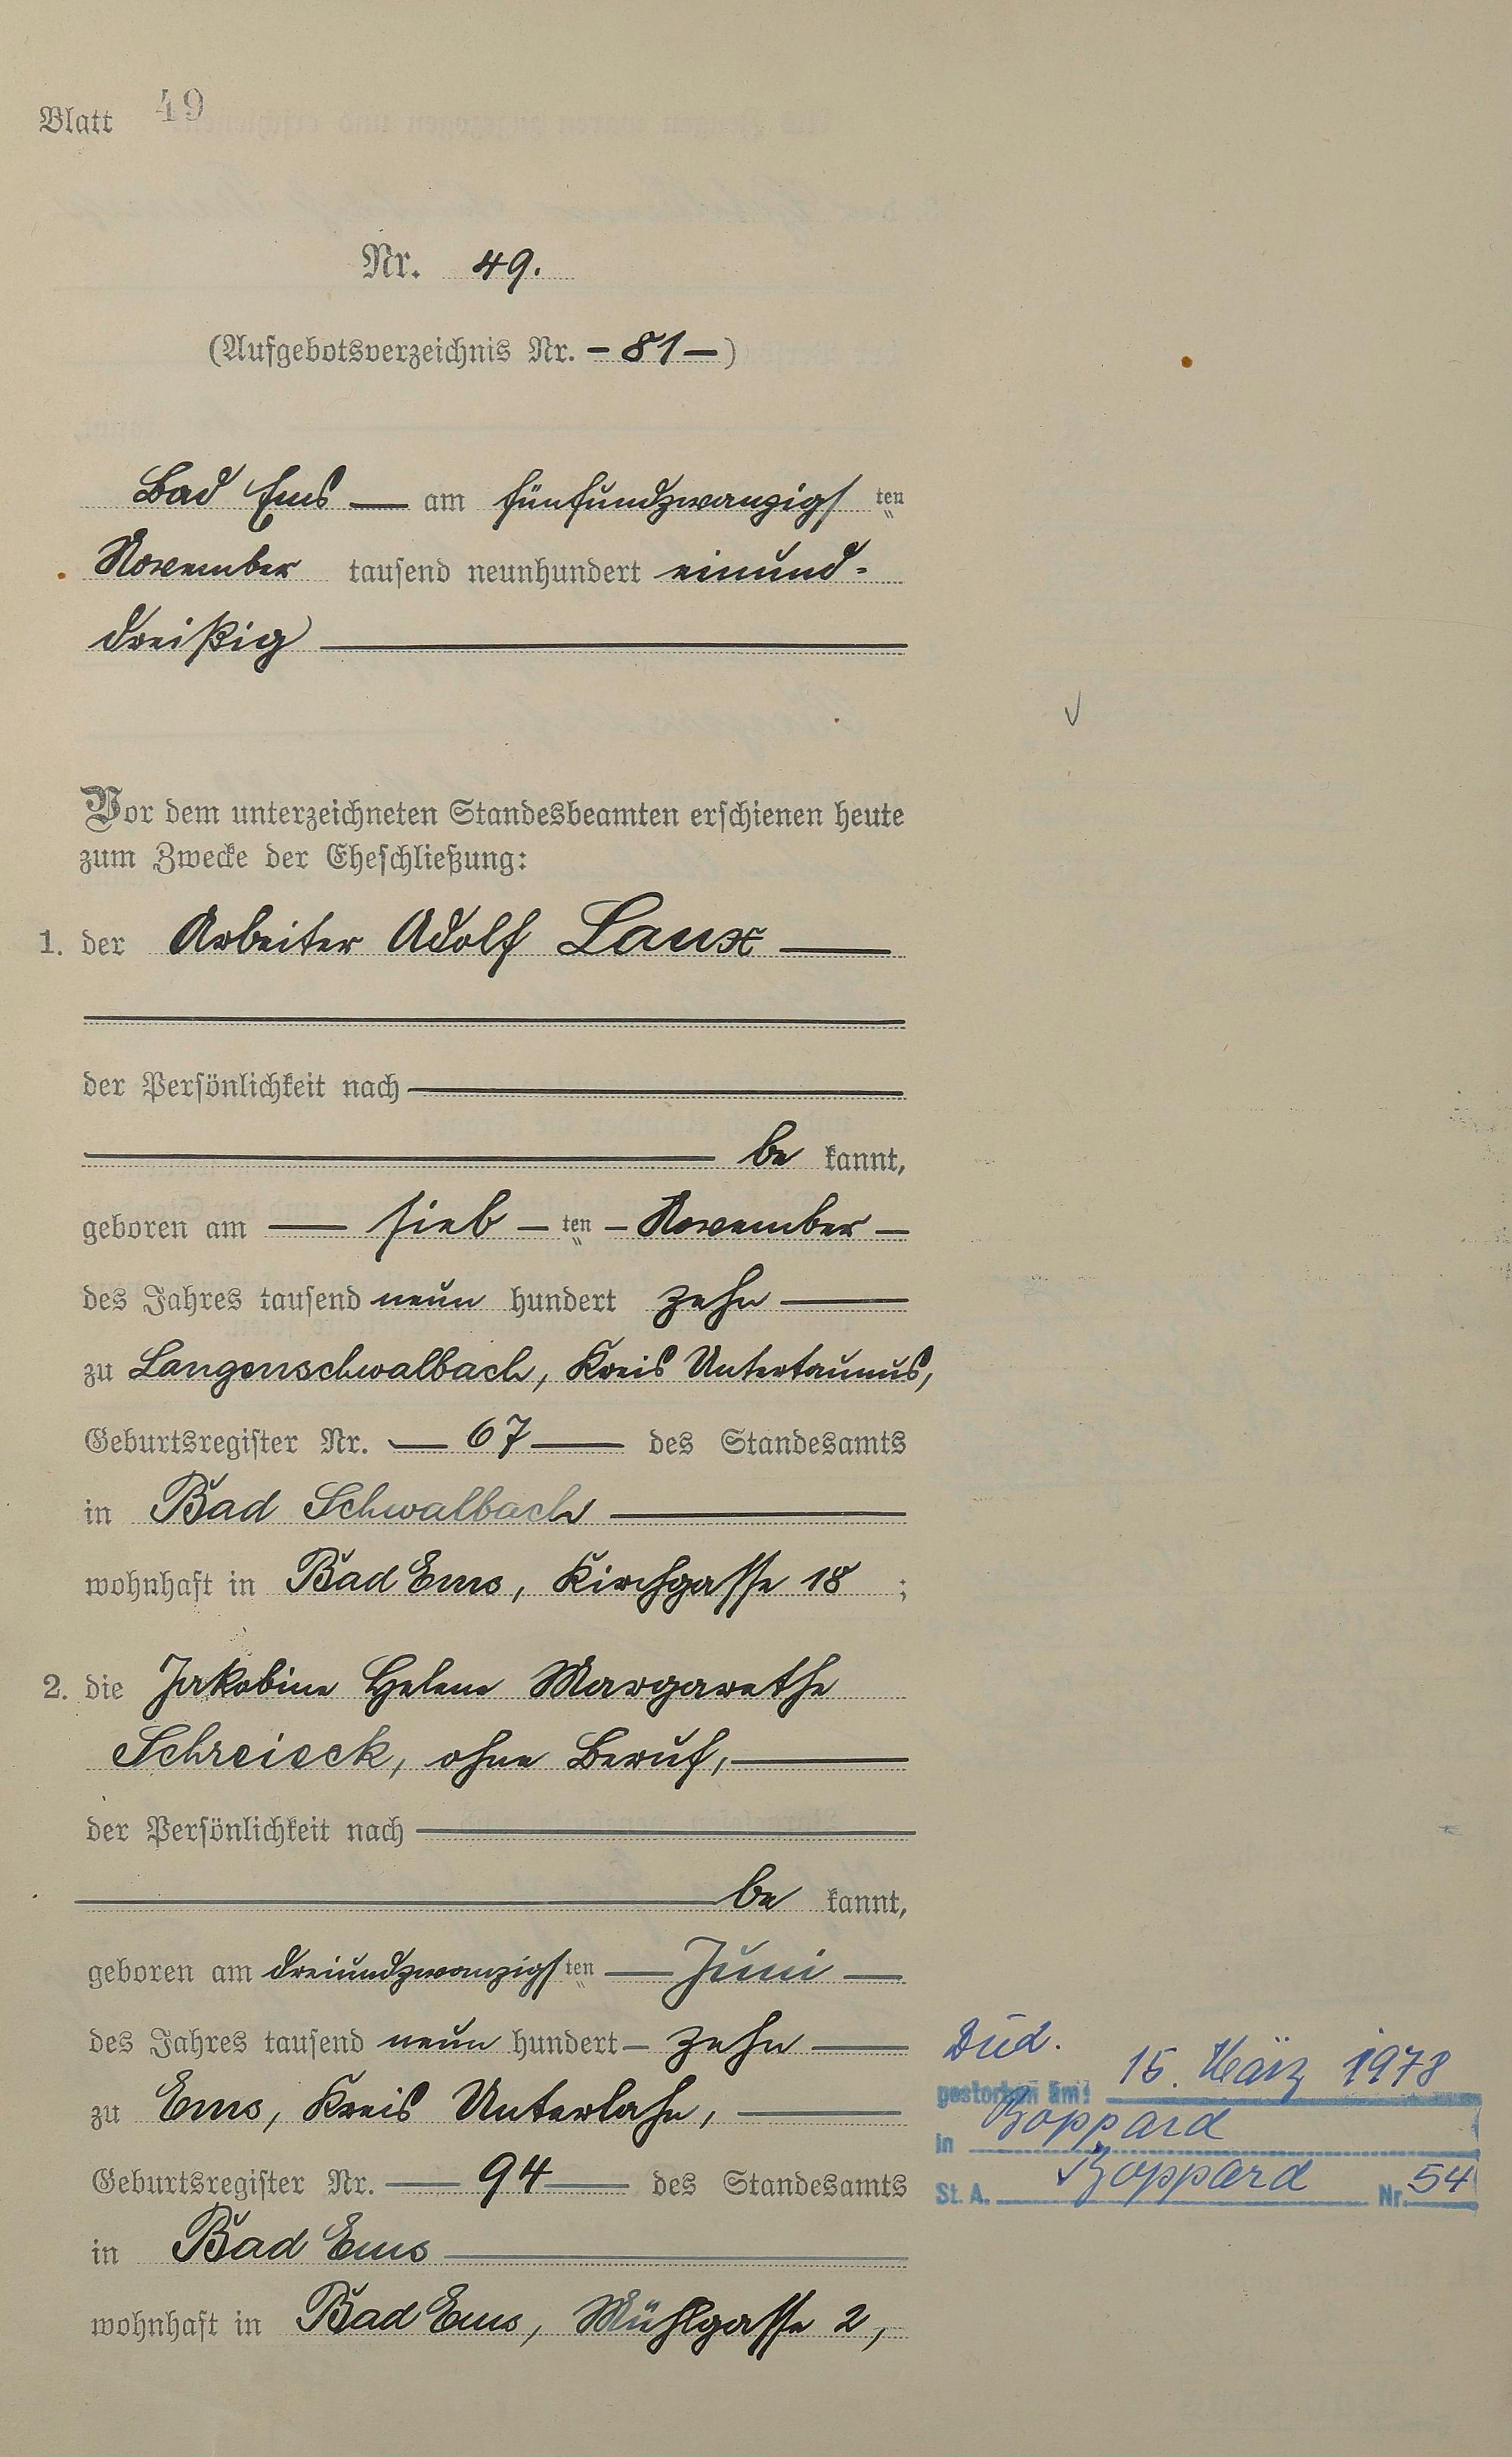 Blatt 49
Nr. 49.
(Aufgebotsverzeichnis Nr. - 81 -)
Bad Ems — am fünfundzwanzigsten
November tausend neunhundert einund-
dreißig
Vor dem unterzeichneten Standesbeamten erschienen heute
zum Zwecke der Eheschließung:
1. der Arbeiter Adolf Laux —
der Persönlichkeit nach
be kannt,
geboren am — sieb - ten - November -
des Jahres tausend neun hundert zehn —
zu Langenschwalbach, Kreis Untertaunus,
Geburtsregister Nr. — 67 — des Standesamts
in Bad Schwalbach —
wohnhaft in Bad Ems, Kirchgasse 18 ;
2. die Jakobine Helene Margarethe
Schreieck, ohne Beruf, —
der Persönlichkeit nach
be kannt,
geboren am dreiundzwanzigsten — Juni —
des Jahres tausend neun hundert - zehn —
zu Ems, Kreis Unterlahn, —
Geburtsregister Nr. — 94 — des Standesamts
in Bad Ems —
wohnhaft in Bad Ems, Mühlgasse 2,
gestorben am: 15. März 1978
in Boppard
St. A. Boppard Nr. 54